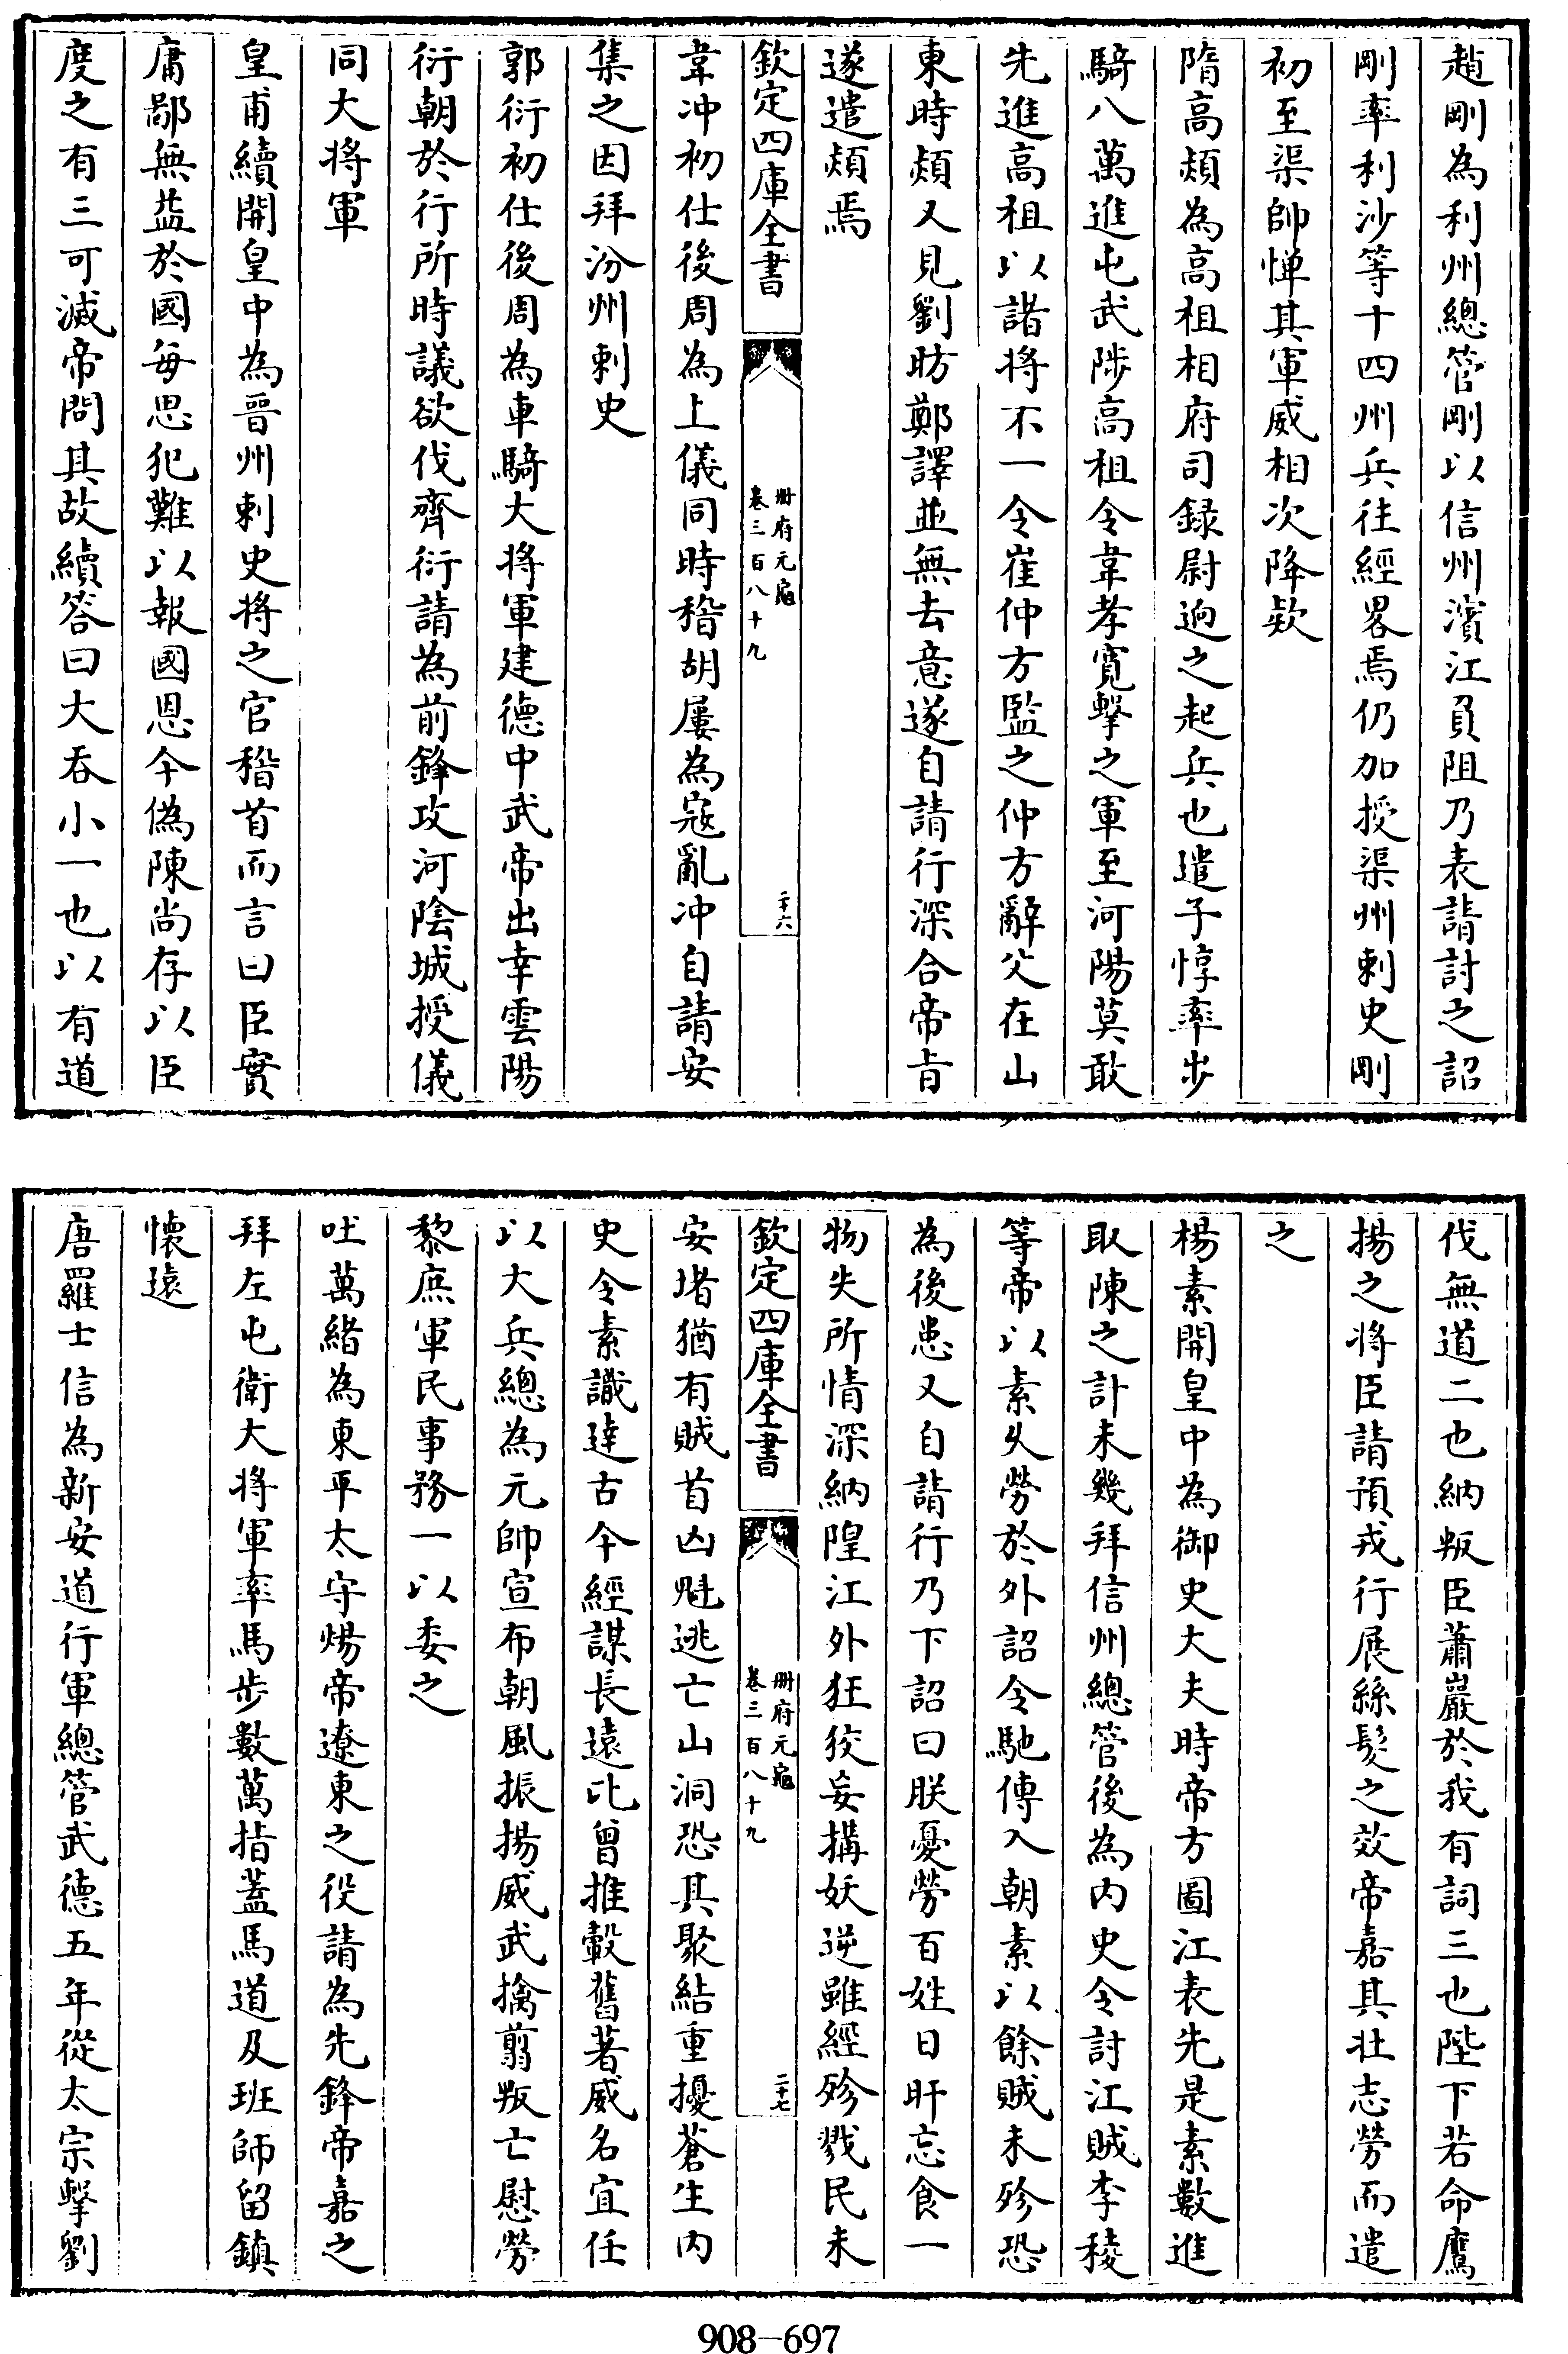 趙剛為利州總管剛以信州濱江負阻乃表請討之詔
剛率利沙等十四州兵往經畧焉仍加授渠州刺史剛
初至渠帥憚其軍威相次降欵
隋高熲為高祖相府司録尉迥之起兵也遣子惇率步
騎八萬進屯武陟高祖令韋孝寛擊之軍至河陽莫敢
先進高祖以諸将不一令崔仲方監之仲方辭父在山
東時熲又見劉昉鄭譯並無去意遂自請行深合帝旨
遂遣熲焉
欽定四庫全書
冊府元龜
卷三百八十九
二十六
韋冲初仕後周為上儀同時稽胡屢為寇亂冲自請安
集之因拜汾州刺史
郭衍初仕後周為車騎大将軍建德中武帝出幸雲陽
衍朝於行所時議欲伐齊衍請為前鋒攻河陰城授儀
同大将軍
皇甫績開皇中為晉州刺史将之官稽首而言曰臣實
庸鄙無益於國每思犯難以報國恩今偽陳尚存以臣
度之有三可滅帝問其故績答曰大吞小一也以有道
伐無道二也納叛臣蕭巖於我有詞三也陛下若命鷹
揚之将臣請預戎行展絲髮之效帝嘉其壯志勞而遣
之
楊素開皇中為御史大夫時帝方圖江表先是素數進
取陳之計未幾拜信州總管後為内史令討江賊李稜
等帝以素久勞於外詔令馳傳入朝素以餘賊未殄恐
為後患又自請行乃下詔曰朕憂勞百姓日旰忘食一
物失所情深納隍江外狂狡妄搆妖逆雖經殄戮民未
欽定四庫全書
冊府元龜
卷三百八十九
二十七
安堵猶有賊首凶魁逃亡山洞恐其聚結重擾蒼生内
史令素識達古今經謀長遠比曾推轂舊著威名宜任
以大兵總為元帥宣布朝風振揚威武擒翦叛亡慰勞
黎庶軍民事務一以委之
吐萬緒為東平太守煬帝遼東之役請為先鋒帝嘉之
拜左屯衛大将軍率馬步數萬指蓋馬道及班師留鎮
懷遠
唐羅士信為新安道行軍總管武德五年從太宗擊劉
908-697